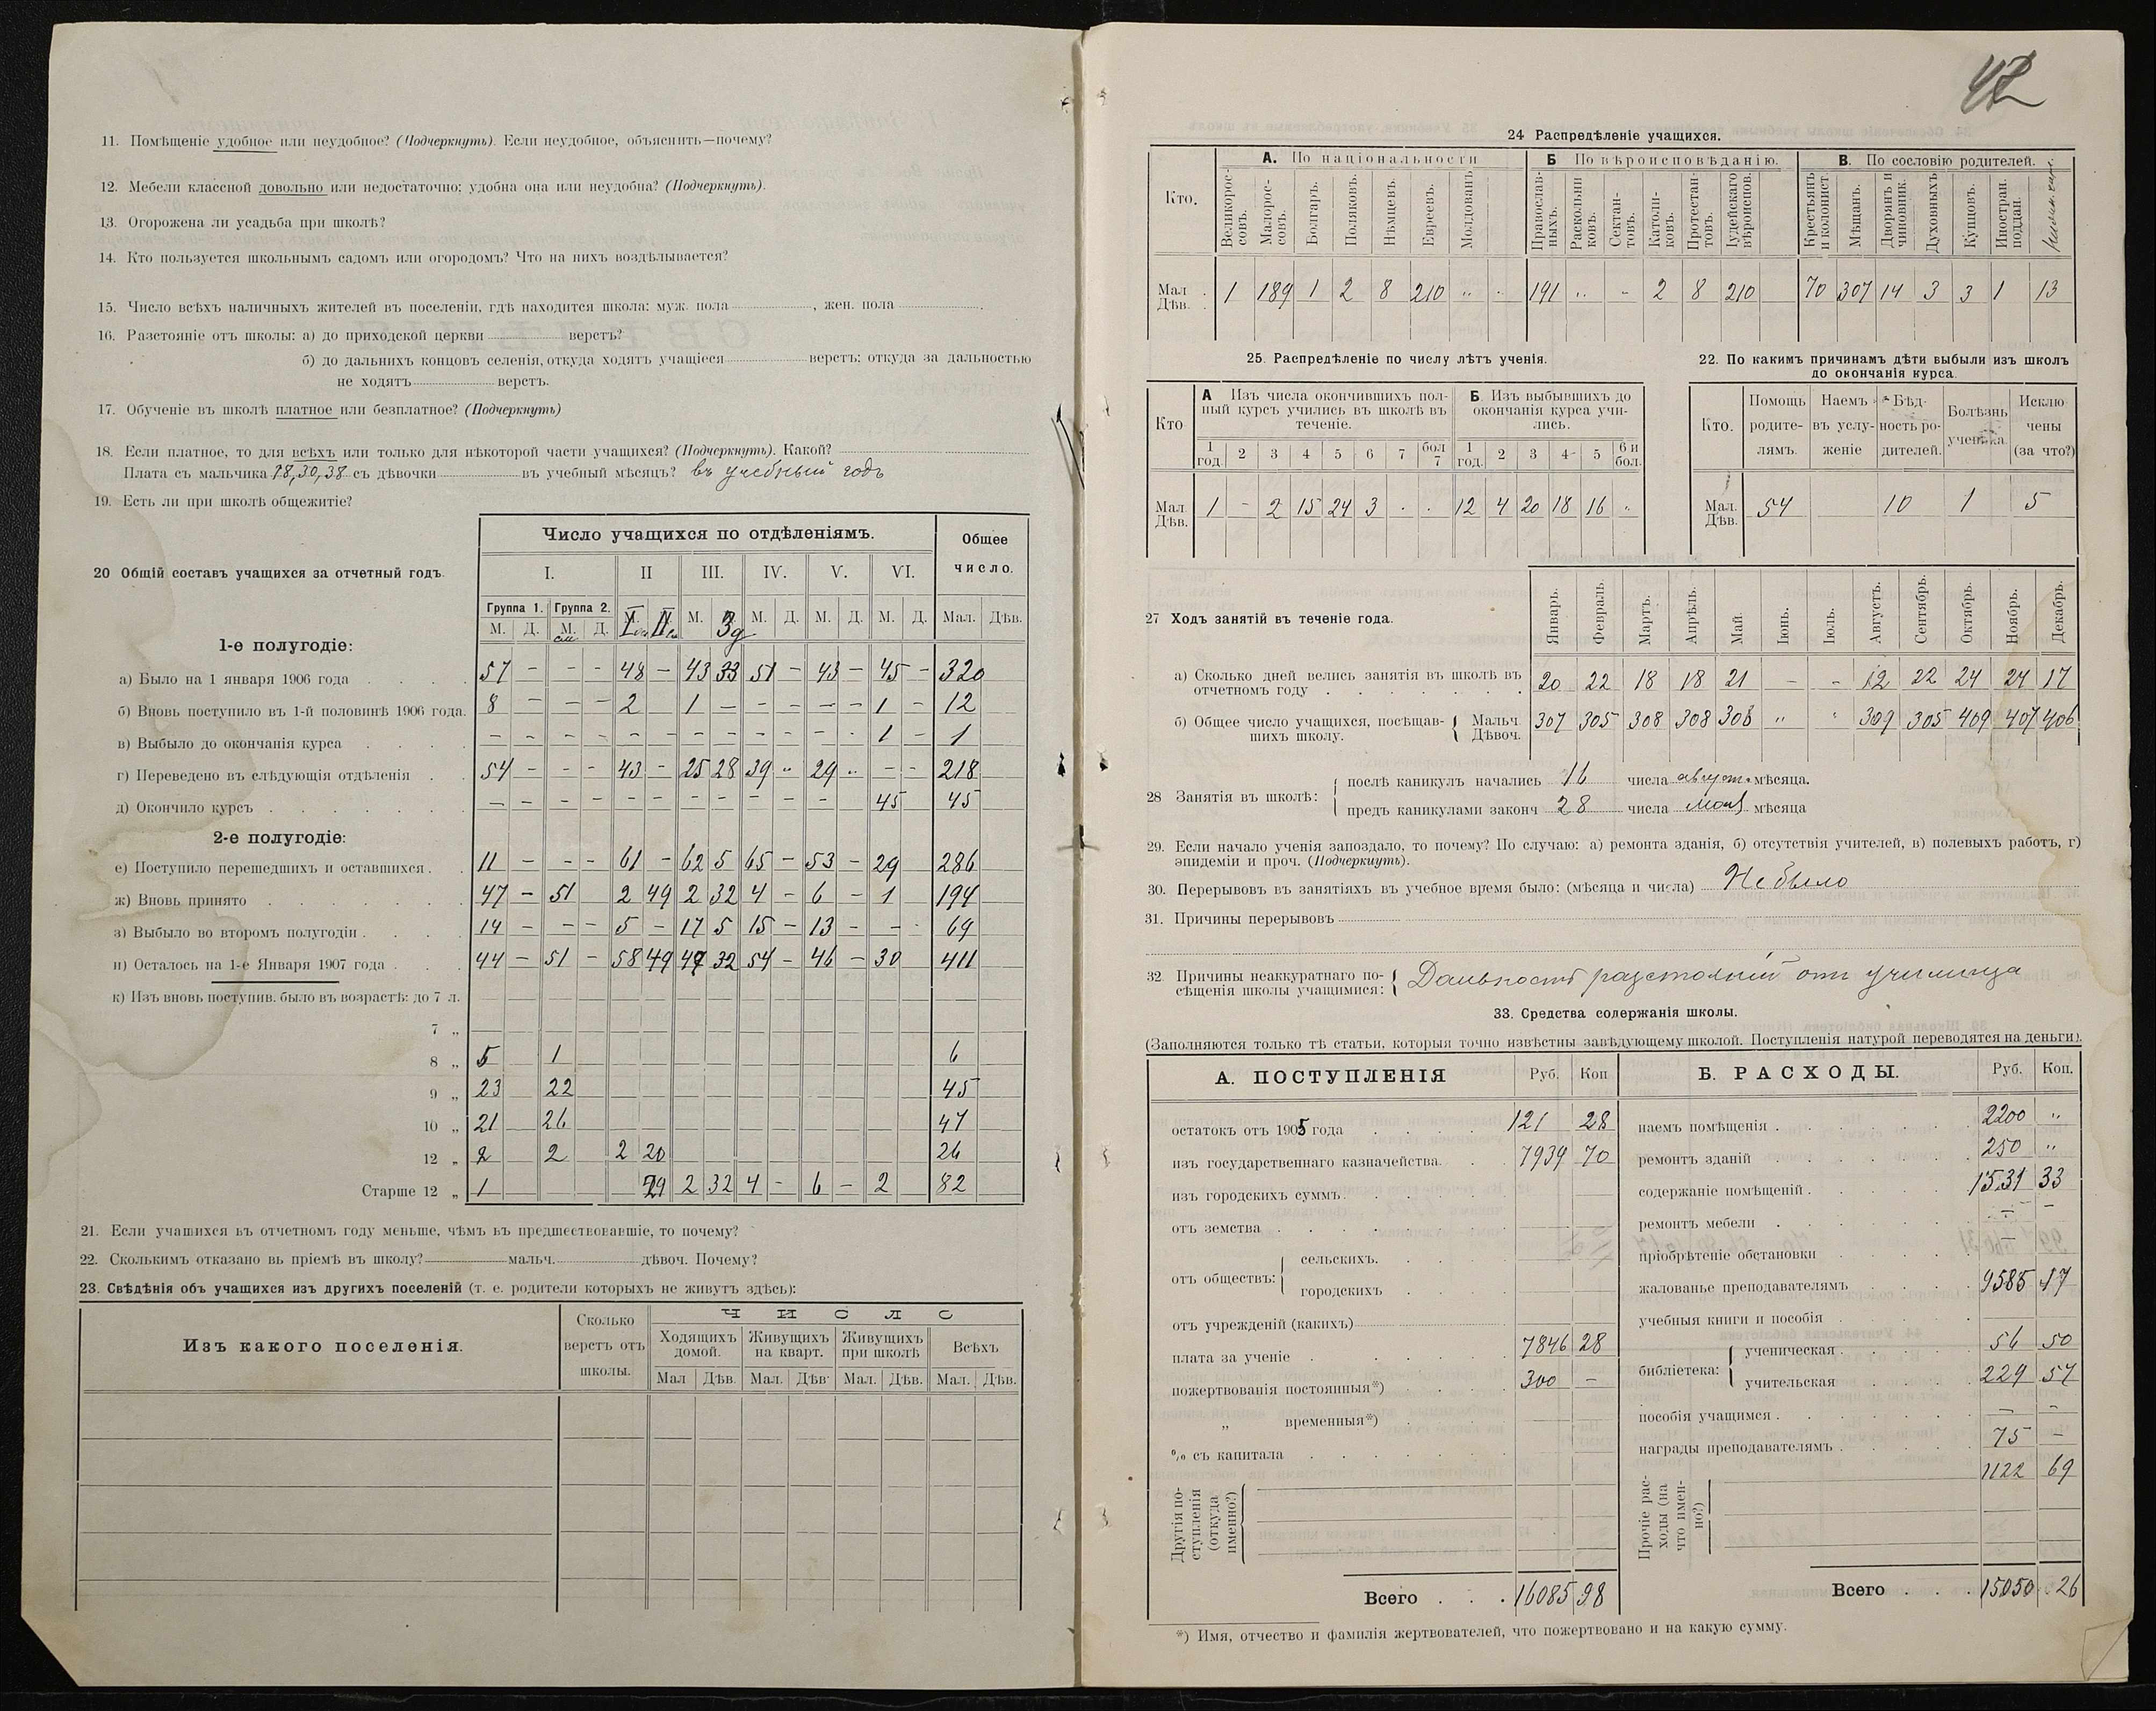 11. Помѣщеніе удобное или неудобное? (Подчеркнуть). Если неудобное, объяснить—почему?
12. Мебели классной довольно или недостаточно; удобна она или неудобна? (Подчеркнуть).
13. Огорожена ли усадьба при школѣ?
14. Кто пользуется школьнымъ садомъ или огородомъ? Что на нихъ воздѣлывается?
15. Число всѣхъ наличныхъ жителей въ поселеніи, гдѣ находится школа: муж. пола , жен. пола .
16. Разстояніе отъ школы: а) до приходской церкви верстъ?
б) до дальнихъ концовъ селенія, откуда ходятъ учащіеся верстъ: откуда за дальностью
не ходятъ верстъ.
17. Обученіе въ школѣ платное или безплатное? (Подчеркнуть)
18. Если платное, то для всѣхъ или только для нѣкоторой части учащихся? (Подчеркнуть). Какой?
Плата съ мальчика 18,30,38 съ дѣвочки въ учебный мѣсяцъ? въ учебный годъ
19. Есть ли при школѣ общежитіе?
20 Общій составъ учащихся за отчетный годъ.
Число учащихся по отдѣленіямъ. Общее число.
I. II III. IV. V. VI.
Группа 1. Группа 2.
М. Д. М. Д. М. 3д М. Д. М. Д. М. Д. Мал. Дѣв.
1-е полугодіе:
а) Было на 1 января 1906 года 57 – – – 48 – 43 33 51 – 43 – 45 – 320
б) Вновь поступило въ 1-й половинѣ 1906 года. 8 – – – 2 1 – – – – – 1 – 12
в) Выбыло до окончанія курса – – – – – – – – – – – - 1 – 1
г) Переведено въ слѣдующія отдѣленія 54 – – – 43 – 25 28 39 „ 29 „ – – 218
д) Окончило курсъ – – – – – – – – – – – 45 45
2-е полугодіе:
е) Поступило перешедшихъ и оставшихся. 11 – – – 61 – 62 5 65 – 53 – 29 286
ж) Вновь принято 47 – 51 2 49 2 32 4 – 6 – 1 194
з) Выбыло во второмъ полугодіи 14 – – – 5 – 17 5 15 – 13 – – - 69
и) Осталось на 1-е Января 1907 года 44 – 51 – 58 49 47 32 54 – 46 – 30 411
к) Изъ вновь поступив. было въ возрастѣ: до 7 л.
7 „
8 „ 5 1 6
9 „ 23 22 45
10 „ 21 26 47
12 „ 2 2 2 20 26
Старше 12 „ 1 29 2 32 4 – 6 – 2 82
21. Если учащихся въ отчетномъ году меньше, чѣмъ въ предшествовавшіе, то почему?
22. Сколькимъ отказано въ пріемѣ въ школу? мальч. дѣвоч. Почему?
23. Свѣдѣнія объ учащихся изъ другихъ поселеній (т. е. родители которыхъ не живутъ здѣсь):
Изъ какого поселенія.
Сколько верстъ отъ школы.
Число
Ходящихъ домой. Живущихъ на кварт. Живущихъ при школѣ Всѣхъ
Мал Дѣв. Мал. Дѣв. Мал. Дѣв. Мал. Дѣв.
42
24 Распредѣленіе учащихся.
Кто.
А. По національности Б По вѣроисповѣданію. В. По сословію родителей.
Великорос-совъ. Малорос-совъ. Болгаръ. Поляковъ. Нѣмцевъ. Евреевъ. Молдованъ Православ-ныхъ. Раскольни ковъ. Сектан-товъ. Католи-ковъ. Протестан-товъ. Іудейскаго вѣроисповъ. Крестьянъ и колонист. Мѣщанъ. Дворянъ и чиновник. Духовныхъ Купцовъ. Иностран. поддан.
Мал Дѣв. 1 189 1 2 8 210 „ - 191 „ - 2 8 210 70 307 14 3 3 1 13
25. Распредѣленіе по числу лѣтъ ученія.
Кто
А Изъ числа окончившихъ пол-ный курсъ учились въ школѣ въ теченіе.
Б. Изъ выбывшихъ до окончанія курса учи-лись.
1 год. 2 3 4 5 6 7 бол 7 1 год. 2 3 4 5 6 и бол.
Мал. Дѣв. 1 – 2 15 24 3 . . 12 4 20 18 16 „
22. По какимъ причинамъ дѣти выбыли изъ школъ
до окончанія курса.
Кто. Помощь родите-лямъ. Наемъ въ услу-женіе Бѣд-ность ро-дителей. Болѣзнь ученика. Исклю чены (за что?)
Мал. Дѣв. 54 10 1 5
27 Ходъ занятій въ теченіе года.
Январь. Февраль. Мартъ. Апрѣль. Май. Іюнь. Іюль. Августъ. Сентябрь. Октябрь. Ноябрь. Декабрь.
а) Сколько дней велись занятія въ школѣ въ отчетномъ году 20 22 18 18 21 – – 12 22 24 24 17
б) Общее число учащихся, посѣщав-шихъ школу. Мальч. Дѣвоч. 307 305 308 308 308 „ „ 309 305 409 407 406
28 Занятія въ школѣ:
послѣ каникулъ начались 16 числа август. мѣсяца.
предъ каникулами законч 28 числа мая мѣсяца
29. Если начало ученія запоздало, то почему? По случаю: а) ремонта зданія, б) отсутствія учителей, в) полевыхъ работъ, г)
эпидеміи и проч. (Подчеркнуть).
30. Перерывовъ въ занятіяхъ въ учебное время было: (мѣсяца и числа) Не было
31. Причины перерывовъ
32. Причины неаккуратнаго по-сѣщенія школы учащимися: Дальность разстояній отъ училища
33. Средства содержанія школы.
(Заполняются только тѣ статьи, которыя точно извѣстны завѣдующему школой. Поступленія натурой переводятся на деньги).
А. ПОСТУПЛЕНІЯ Руб. Коп
остатокъ отъ 1905 года 121 28
изъ государственнаго казначейства. 7939 70
изъ городскихъ суммъ.
отъ земства
отъ обществъ: сельскихъ.
городскихъ
отъ учрежденій (какихъ)
плата за ученіе 7846 28
пожертвованія постоянныя*) 300 –
„ временныя*)
% съ капитала
Другія по-ступленія (откуда именно?)
Всего 16085 98
Б. РАСХОДЫ. Руб. Коп.
наемъ помѣщенія 2200 „
ремонтъ зданій 250 „
содержаніе помѣщеній 1531 33
ремонтъ мебели – –
пріобрѣтеніе обстановки –
жалованье преподавателямъ 9585 17
учебныя книги и пособія
библіотека: ученическая 56 50
учительская 229 57
пособія учащимся – –
награды преподавателямъ 75 –
Прочіе рас-ходы (на что имен-но?) 1122 69
Всего 15050 26
*) Имя, отчество и фамилія жертвователей, что пожертвовано и на какую сумму.